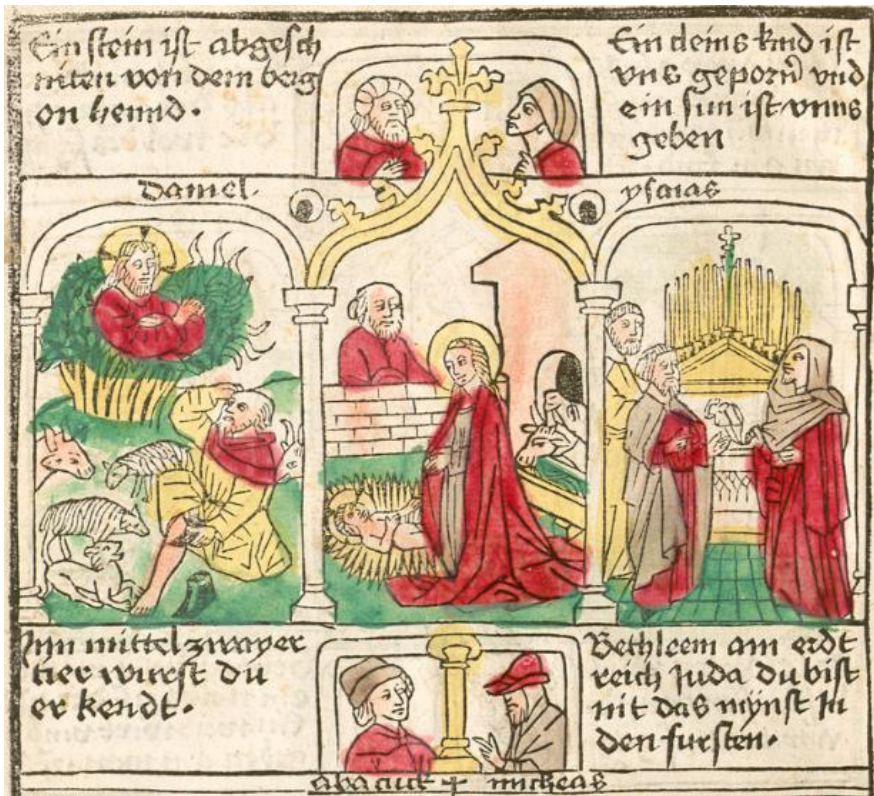 Ein stein ist abgesch
niten von dem berg
on hennd.
Ein cleins kind ist
vns geporn̄ vnd
ein sun ist vnns
geben
daniel.
ysaias
Inn mittel zwayer
tier wurst du
er kendt.
Bethleem am erdt
reich Juda du bist
nit das mynst In
den fursten.
abacuck + micheas